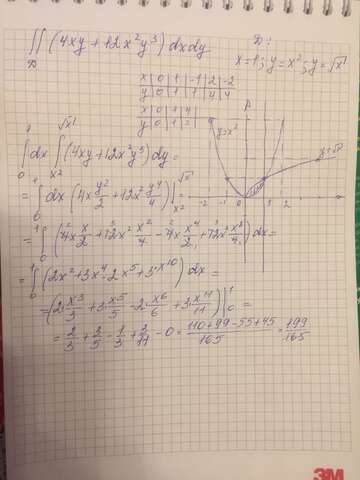 ∬ (4xy + 12x²y³) dxdy. D:
D x=1; y=x²; y=√x
x | 0 | 1 | -1 | 2 | -2
y | 0 | 1 | 1 | 4 | 4
x | 0 | 1 | 4 |
y | 0 | 1 | 2 |
y=x²
y=√x
-2 -1 0 1 2
∫₀¹ dx ∫_{x²}^{√x} (4xy + 12x²y³) dy =
= ∫₀¹ dx (4x y²/2 + 12x² y⁴/4) |_{x²}^{√x} =
= ∫₀¹ (4x x/2 + 12x² x²/4 - 4x x⁴/2 + 12x² x⁸/4) dx =
= ∫₀¹ (2x² + 3x⁴ - 2x⁵ + 3·x¹⁰) dx =
= (2·x³/3 + 3·x⁵/5 - 2·x⁶/6 + 3·x¹¹/11) |₀¹ =
= 2/3 + 3/5 - 1/3 + 3/11 - 0 = (110+99-55+45)/165 = 199/165
3M